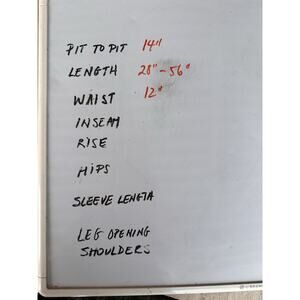 PIT TO PIT 14"
LENGTH 28" - 56"
WAIST 12"
INSEAM
RISE
HIPS
SLEEVE LENGTH
LEG OPENING
SHOULDERS